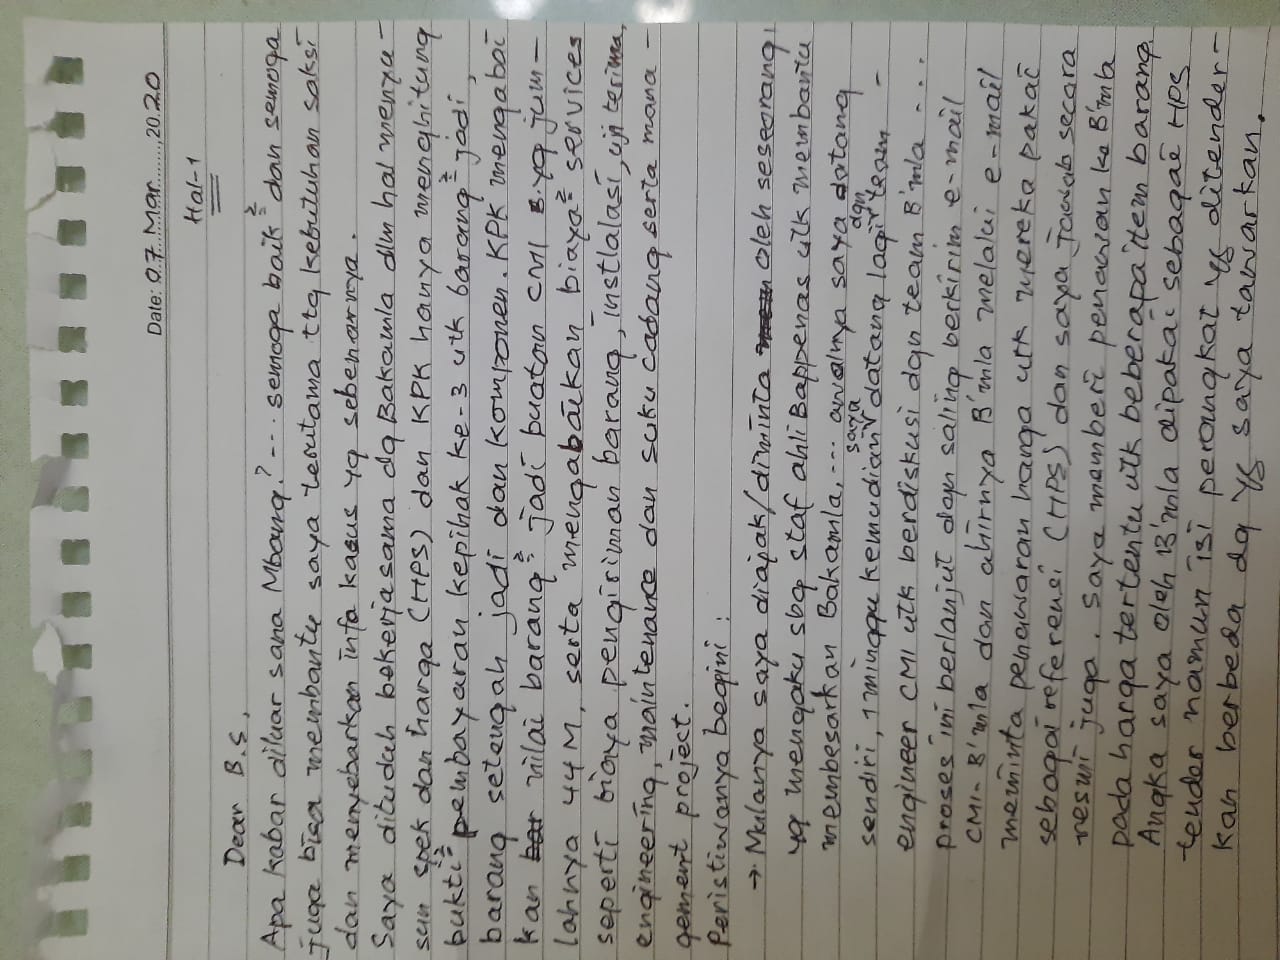 Date: 07 Mar 2020
Hal-1
Dear B.S,
Apa kabar diluar sana Mbang? ... semoga baik² dan semoga
juga bisa membantu saya terutama ttg kebutuhan saksi
dan menyebarkan info kasus yg sebenarnya.
Saya dituduh bekerjasama dg Bakamla dlm hal menyu-
sun spek dan harga (HPS) dan KPK hanya menghitung
bukti² pembayaran kepihak ke-3 utk barang² jadi,
barang setengah jadi dan komponen. KPK mengabai
kan nilai barang² jadi buatan CMI B. yg jum-
lahnya 44 M, serta mengabaikan biaya² services
seperti biaya pengiriman barang, instlalasi, uji terima,
engineering, maintenance dan suku cadang serta mana-
gement project.
Peristiwanya begini :
→ Mulanya saya diajak/diminta oleh seseorang
yg mengaku sbg staf ahli Bappenas utk membantu
membesarkan Bakamla, ... awalnya saya datang
sendiri, 1 minggu kemudian saya datang lagi dgn team -
engineer CMI utk berdiskusi dgn team B'mla ...
proses ini berlanjut dgn saling berkirim e-mail
CMI- B'mla dan ahirnya B'mla melalui e-mail
meminta penawaran harga utk mereka pakai
sebagai referensi (HPS) dan saya jawab secara
resmi juga. Saya memberi penawaran ke B'mla
pada harga tertentu utk beberapa item barang.
Angka saya oleh B'mla dipakai sebagai HPS
tender namun isi perangkat yg ditender-
kan berbeda dg yg saya tawarkan.